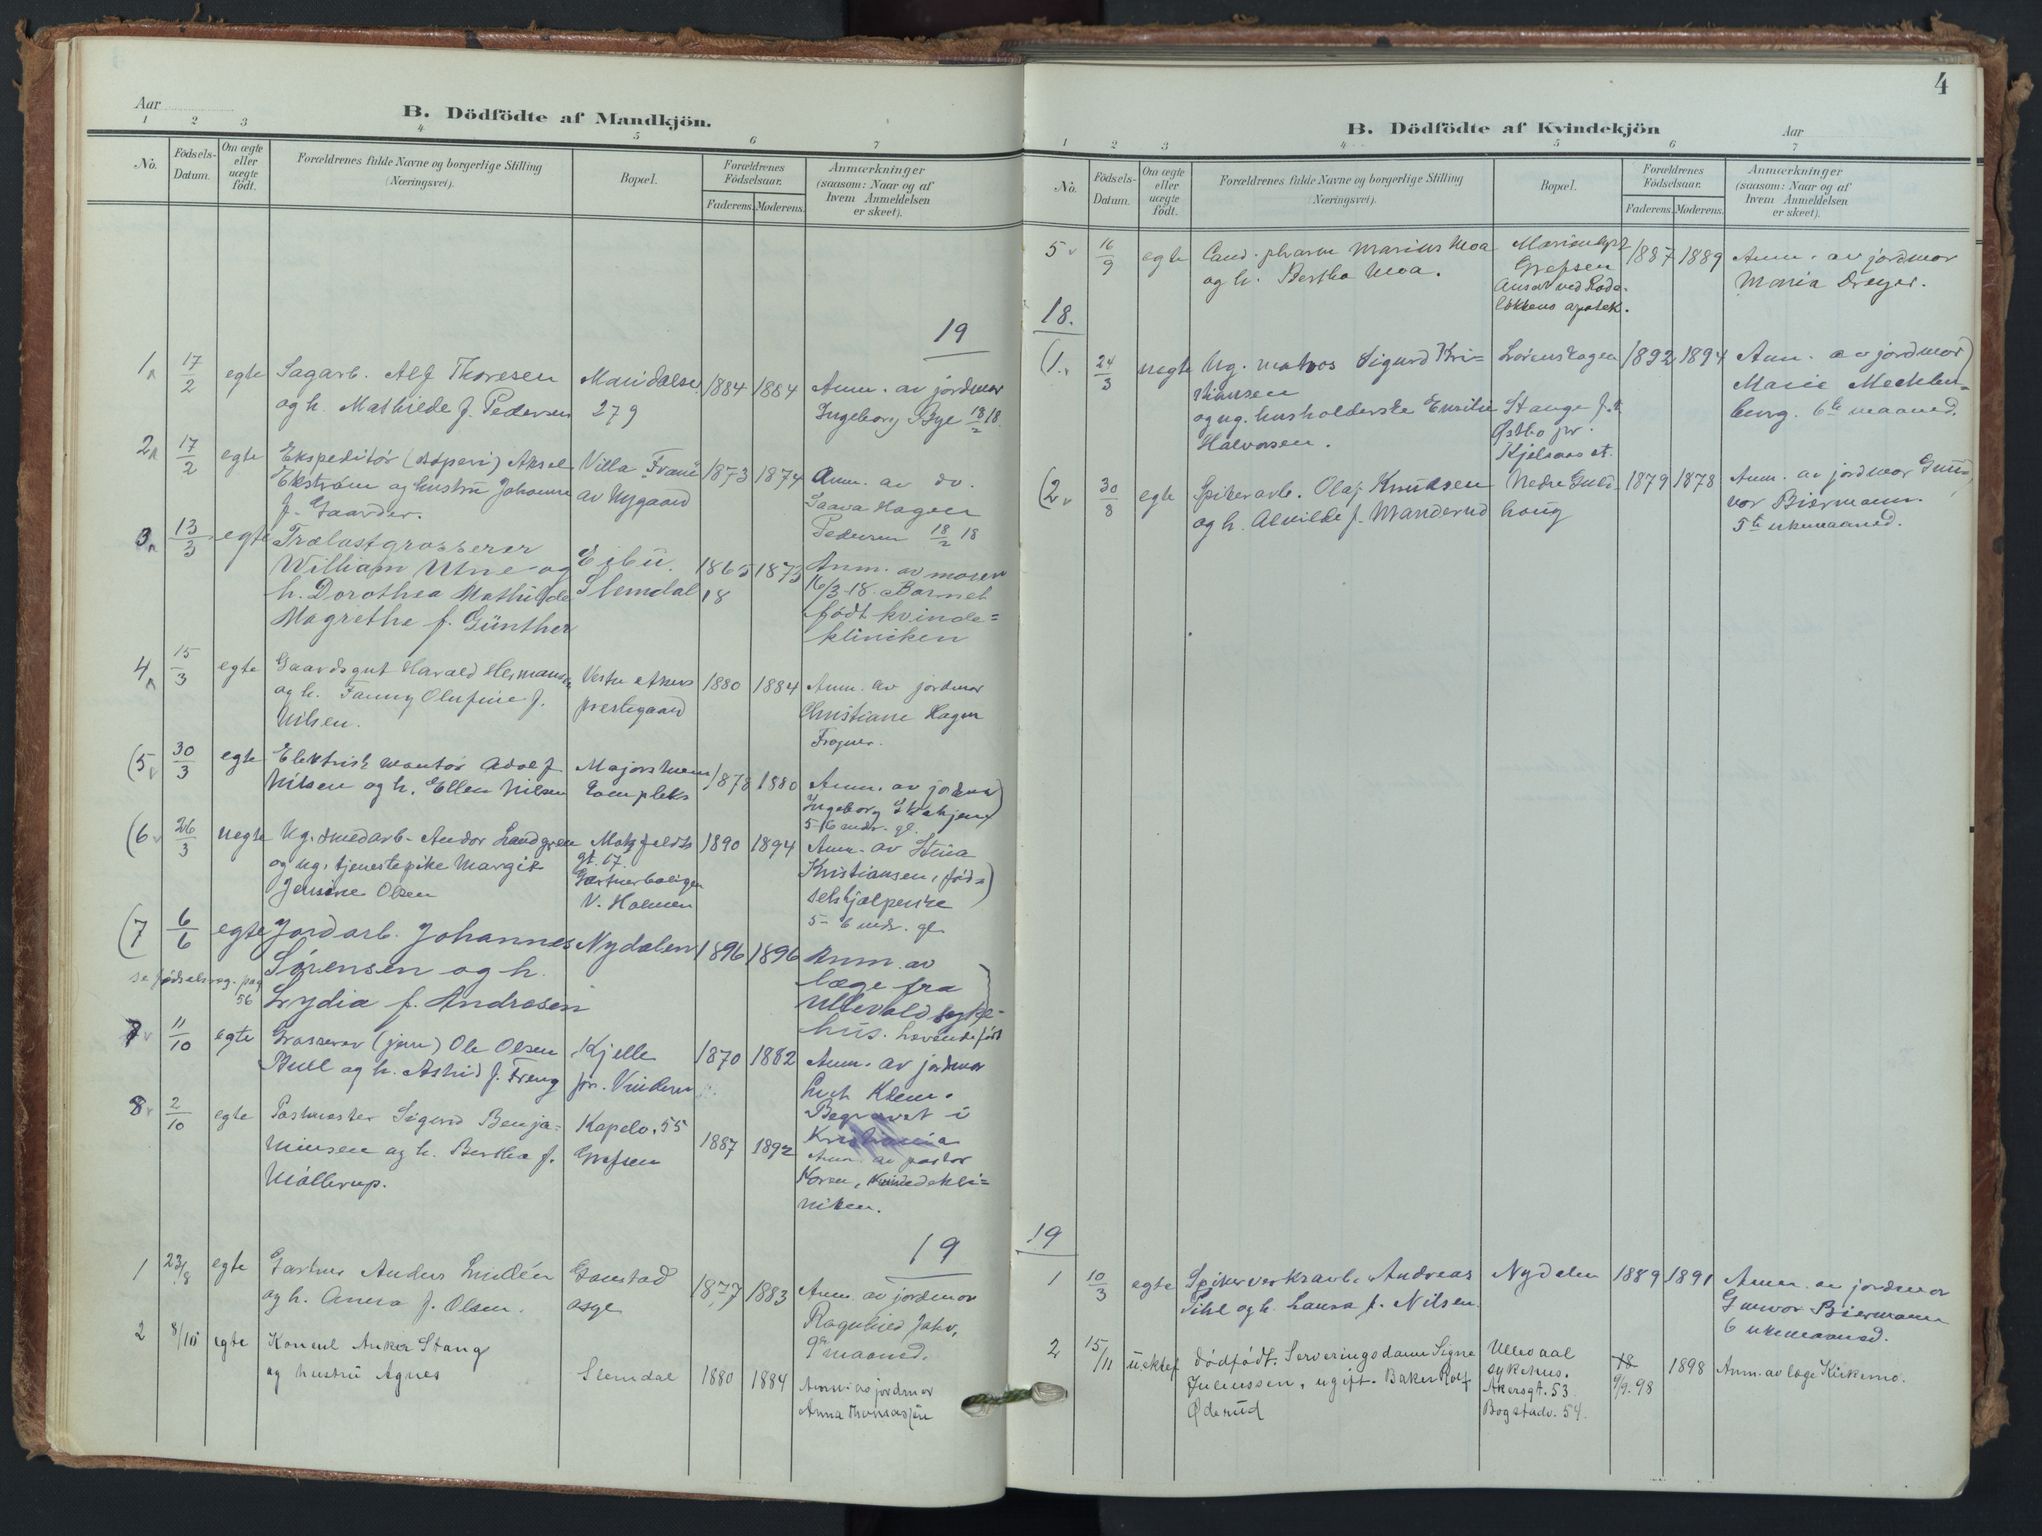 Aar
B. Dödfödte af Mandkjön.
1 2 3 4 5 6 7
No.
Födsels-
Datum.
Om ægte
eller
uægte
födt.
Forældrenes fulde Navne og borgerlige Stilling
(Næringsvei).
Bopæl.
Forældrenes
Födselsaar.
Faderens. Moderens.
Anmærkninger
(saasom: Naar og af
hvem Anmeldelsen
er skeet).
19
1 17/2 egte Sagarb. Alf Thoresen Maridalsv. 1884 1884 Anm. av jordmor
og h. Mathilde f. Pedersen 279 Ingeborg Bye 18/2 18
2 17/2 egte Ekspeditör Aksel Villa 1873 1874 Anm. av do.
Ekström og hustru Johanne av Nygaard Hagen
f. Gaarder. Pedersen 18/2 18
3 13/3 egte Trælastgrosserer
William Utne og Eibu. 1865 1873 Anm. av moren
h. Dorothea Mathilde Slemdal 18 16/3-18. Barnet
Magrethe f. Günther født kvinde=
kliniken
4 15/3 egte Gaardsgut Harald Hermansen Vestre Akers 1880 1884 Anm. av jordmor
og h. Fanny Olufine f. prestegaard Christiane Hagen
Nilsen. Frogner.
(5 30/3 egte Elektrisk montör Adolf Majorstuen 1878 1880 Anm. av jordmor)
Nilsen og h. Ellen Nilsen kompleks Ingeborg
5-6 mdr. gl.
(6 26/3 uegte Ug. smedarb. Andor Landgren 1890 1894 Anm. av Stina
og ug. tjenestepike Margit gt. 17. Kristiansen, fød=)
Jensine Olsen Gartnerboligen selshjælperske
V. Holmen 5-6 mdr. gl.
(7 6/6 egte Jordarb. Johannes Nydalen 1896 1896 Anm. av
Sørensen og h. læge fra
se fødselsreg. pag 56 Lydia f. Andrasen Ullevold syke-
hus. Levendefødt
7 11/10 egte Grosserer (jern) Ole Olsen Kjelle 1870 1882 Anm. av jordmor
Bull og h. Astrid f. Freng pr. Vinderen Klem.
Begravet i
8 2/10 egte Postmester Sigurd Benja= Kapelv. 55 1887 1892 Kristiania
minsen og h. Bertha f. Grefsen Anm. av pastor
Möllerup. Koren, Kvindekli=
niken.
19
1 23/8 egte Gartner Anders Lindén Gaustad 1877 1883 Anm. av jordmor
og h. Anna f. Olsen. asyl Ragnhild
2 8/10 egte Konsul Anker Stang 9de maaned.
og hustru Agnes Slemdal 1880 1884 Anm. av jordmor
Anna
4
B. Dödfödte af Kvindekjön
Aar
1 2 3 4 5 6 7
No.
Födsels-
Datum.
Om ægte
eller
uægte
födt.
Forældrenes fulde Navne og borgerlige Stilling
(Næringsvei).
Bopæl.
Forældrenes
Födselsaar.
Faderens. Moderens.
Anmærkninger
(saasom: Naar og af
hvem Anmeldelsen
er skeet).
5 16/9 egte Cand. pharm Marius Moa 1887 1889 Anm. av jordmor
og h. Bertha Moa. Grefsen Maria Dreyer.
Ansat ved Rode-
løkkens apotek.
18.
(1. 24/3 uegte Ug. matros Sigurd Kri- Lörenskogen 1892 1894 Anm. av jordmor)
stiansen Marie Mecklen-
og ug. husholderske Emilie Stange f. t. burg. 6te maaned.
Halvorsen. Østbo pr.
Kjelsaas st.
(2 30/8 egte Spikerarb. Olaf Knudsen Nedre Guld 1879 1878 Anm. av jordmor Gun-
og h. Alvilde f. Manderud haug vor Biermann.
5te ukemaaned.
19
1 10/3 egte Spikerverksarb. Andreas Nydalen 1889 1891 Anm. av jordmor
Pihl og h. Laura f. Nilsen. Gunvor Biermann
6 ukemaaned.
2 15/11 uektef dødfödt. Serveringsdame Signe Ullevaal 18 1898 Anm. av læge Kirkemo.
Juliussen, ugift. Baker Rolf sykehus. 9/9. 98
Øderud Akersgt. 53.
Bogstadv. 54.